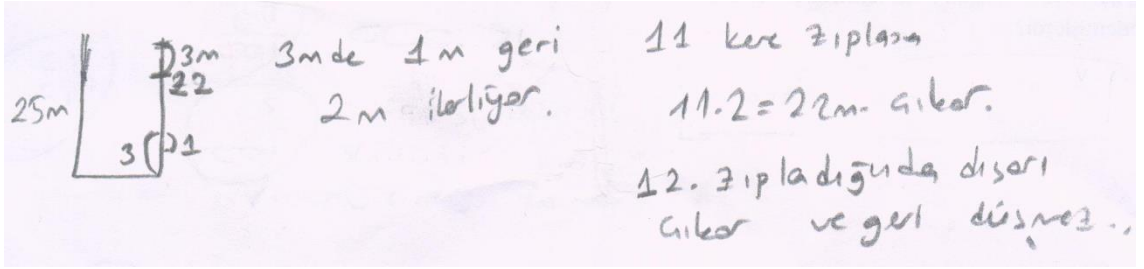 25m
3m
22
3
1
3mde 1m geri
2m ilerliyor.
11 kere zıplasa
11.2=22m. çıkar.
12. zıpladığında dışarı
çıkar ve geri düşmez..